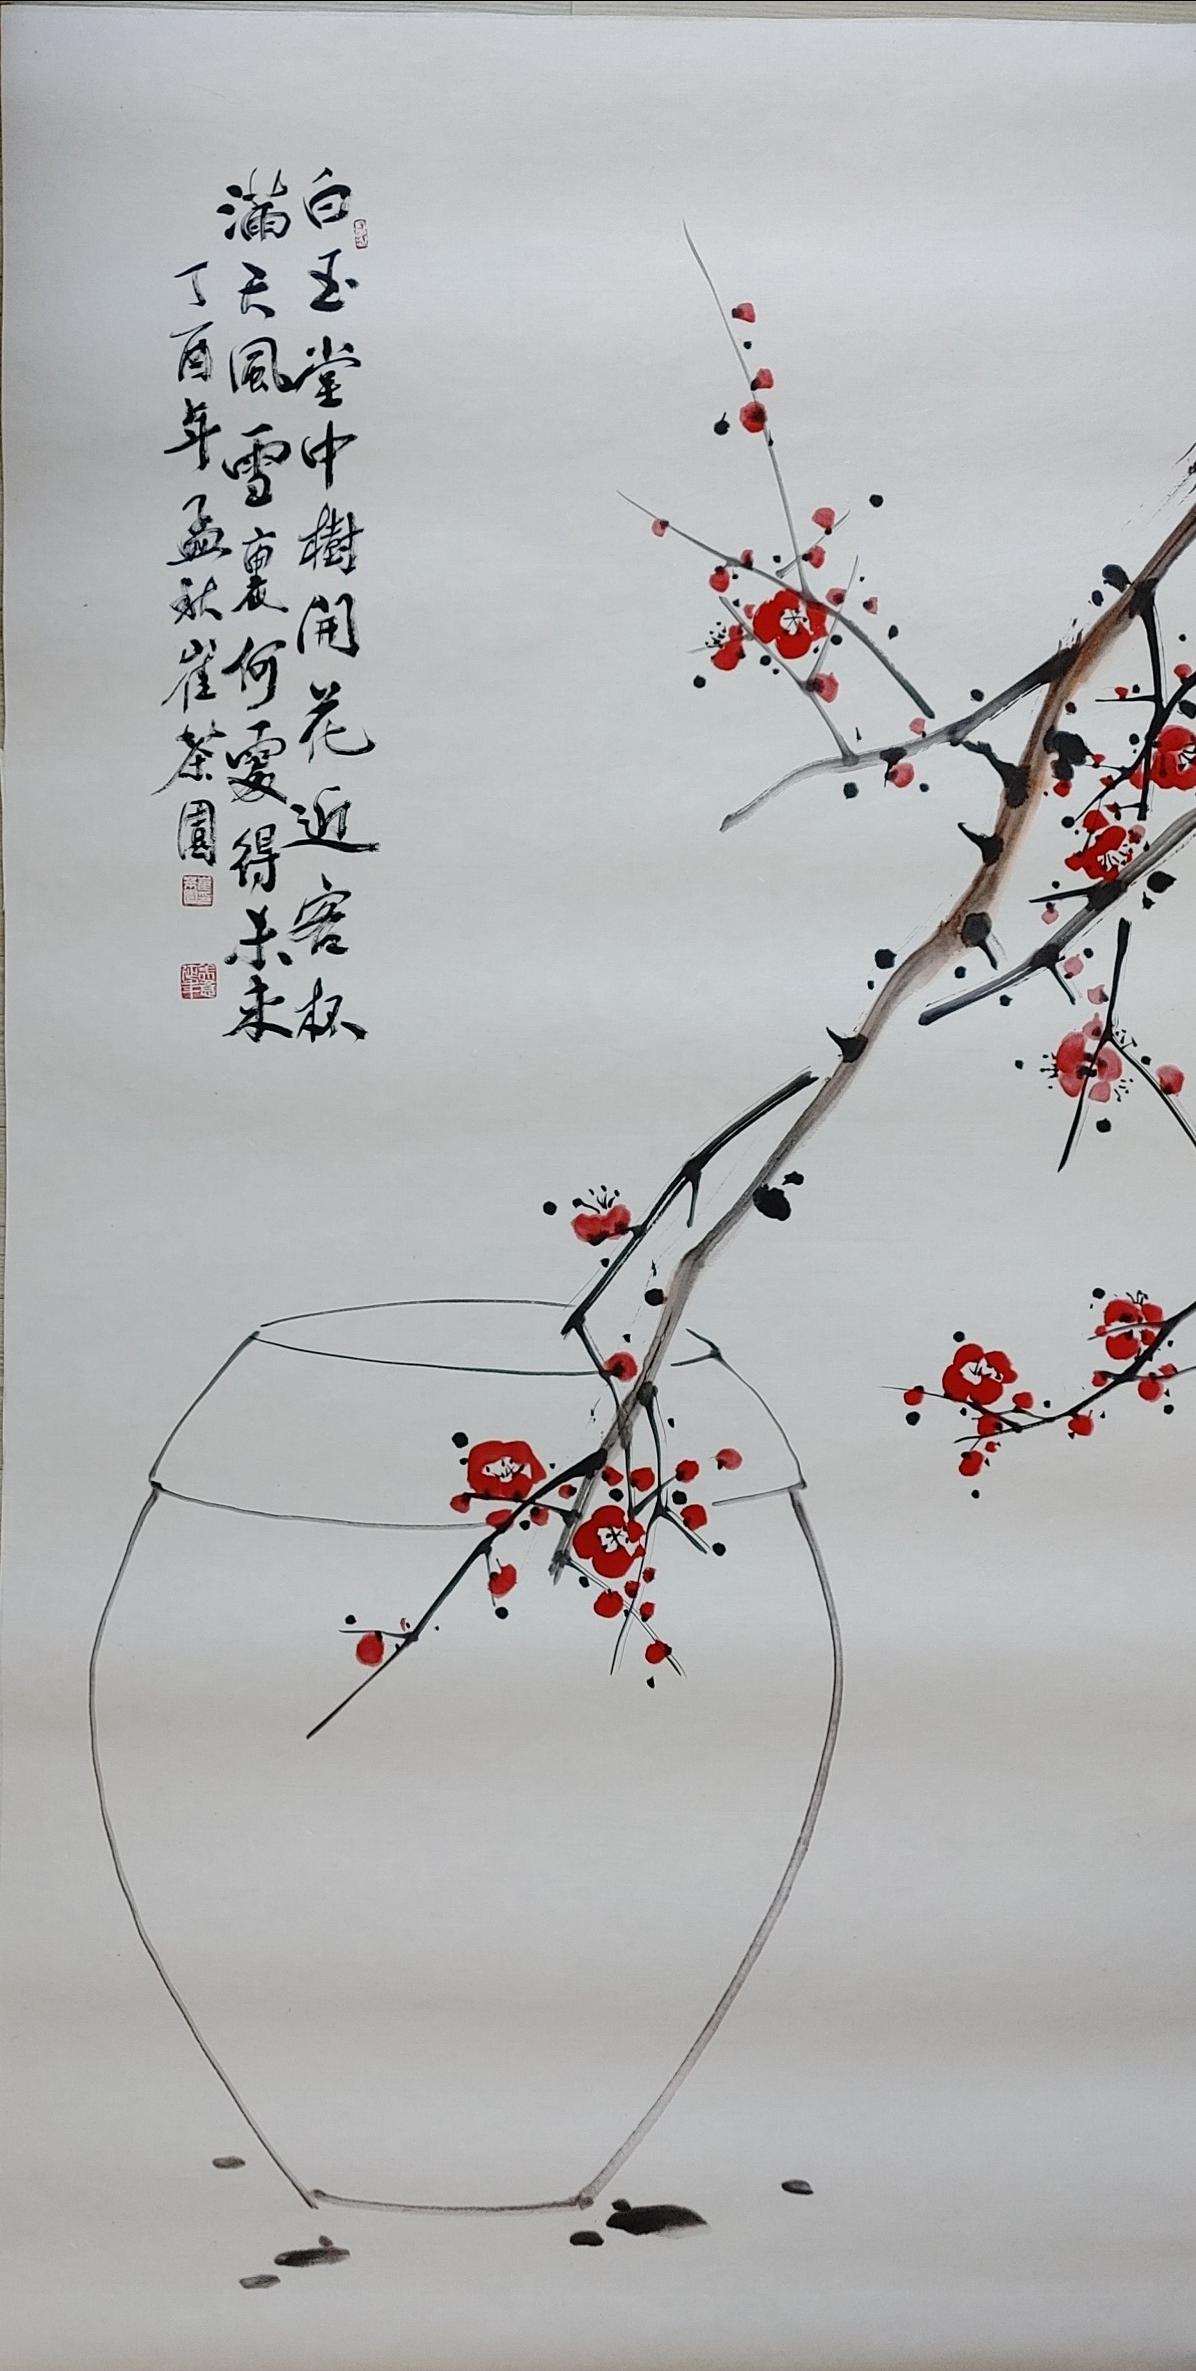 白玉堂中樹開花近客杯
滿天風雪裏何處得未來
丁酉年孟秋崔茶園